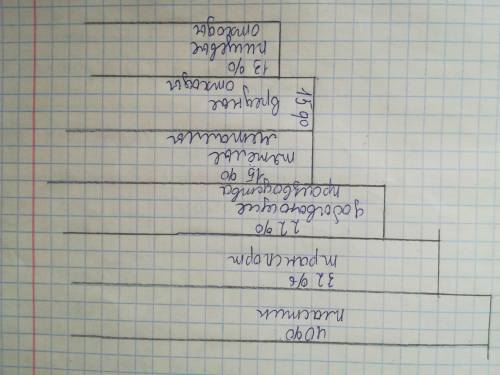 40%
пластик
32%
транспорт
22%
добывающие
производства
15%
тяжелые
металлы
15%
вредные
отходы
13%
пищевые
отходы